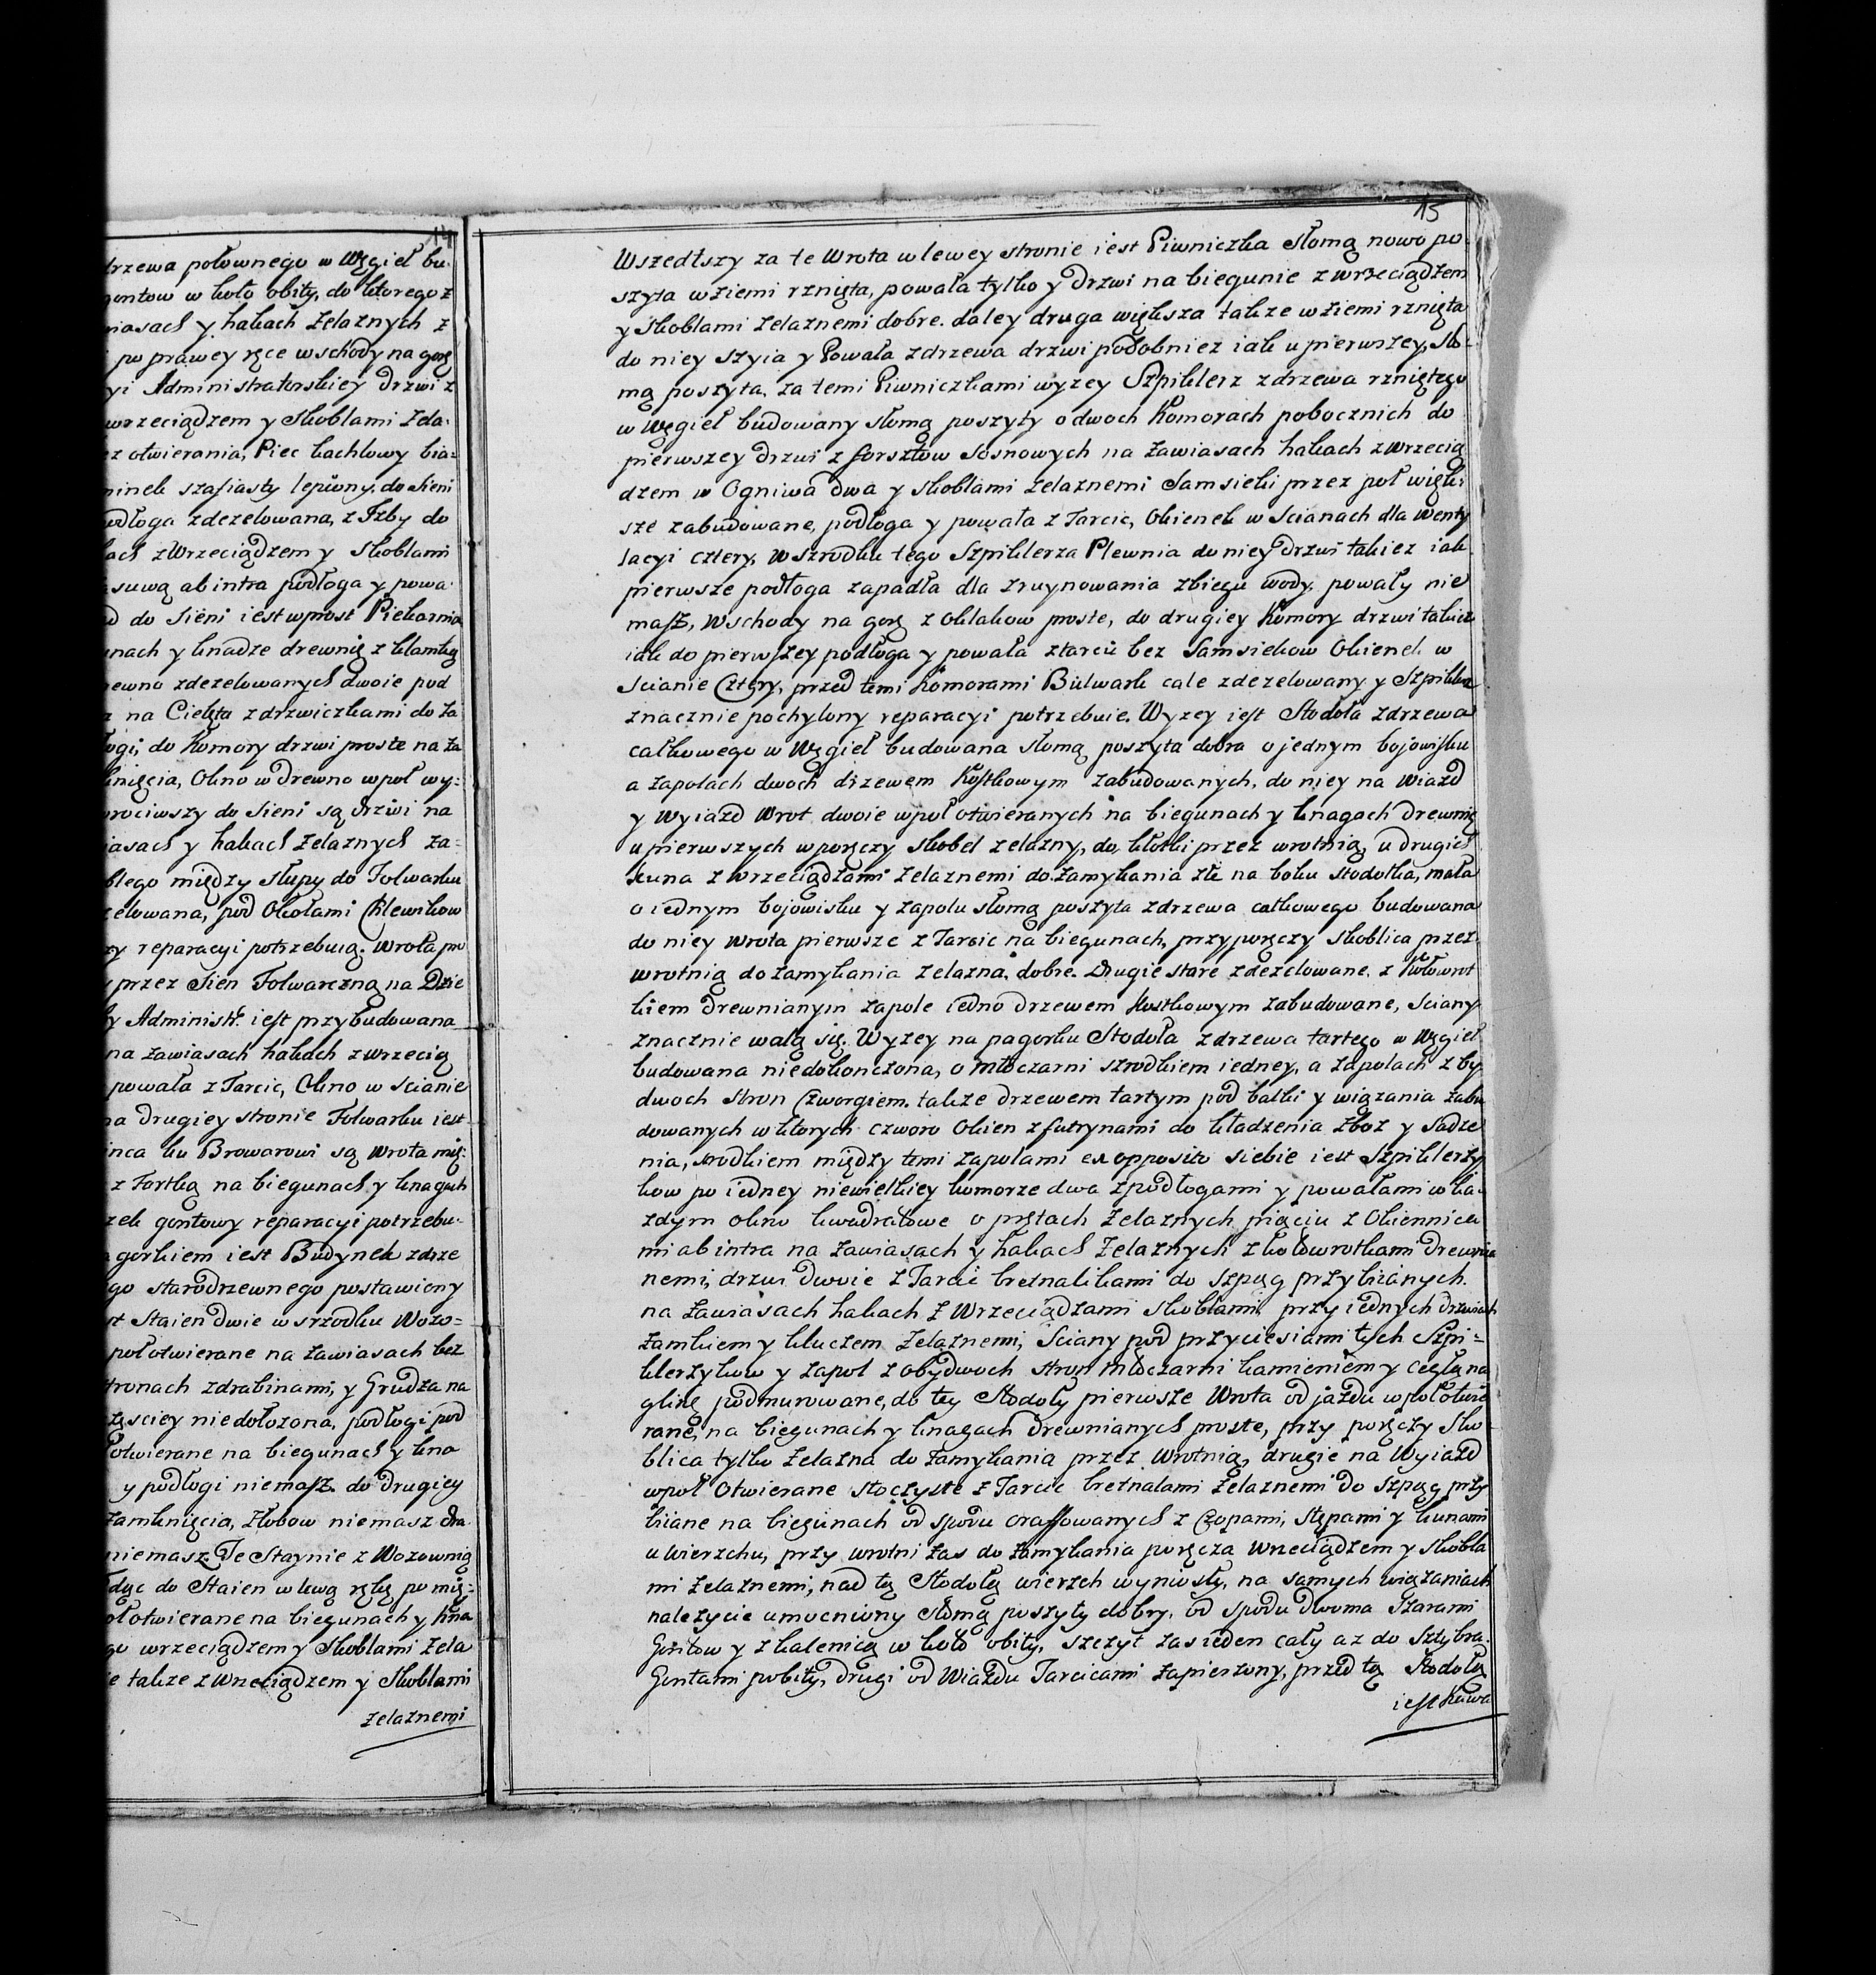 14
drzewa połownego w Węgieł bu-
gontow w koło obity, do ktorego z
iasach y hakach Zelaznych z
po prawey ręce wschody na gorę
yi Administratorskiey Drzwi z
wrzeciądzem y Skoblami Zela-
z otwierania, Piec kachlowy bia-
minek szafiasty lepiony. do Sieni
odłoga zdezelowana, z Izby do
ach z Wrzeciądzem y Skoblami
suwą ab intra podłoga y powa-
do Sieni iest wprost Piekarnia
nach y knadze drewnię z klamką
ewno zdezelowanych dwoie pod
na Cielęta zdrzwiczkami do za
ogi; do Komory drzwi proste na Za
knięcia, Okno w Drewno wpoł wy-
rociwszy do Sieni są drzwi na
iasach y hakach Zelaznych za-
blego między słupy do Folwarku
elowana, pod Okołami Chlewikow
y reparacyi potrzebuią. Wrota po
przez Sien Folwarczną na Dzie
y Administr. iest przybudowana
na zawiasach hakach z wrzecią
powała z Tarcic, Okno w scianie
na drugiey stronie Folwarku iest
nca ku Browarowi są Wrota mię-
z Fortką na biegunach y knagach
zek gontowy reparacyi potrzebu-
gorkiem iest Budynek zdrze
go starodrzewnego postawiony
t Staien dwie w srzodku Wozo-
poł otwierane na zawiasach bez
tronach zdrabinami, y Grudza na
zęsciey niedołozona, podłogi pod
otwierane na biegunach y kna
y podłogi niemasz. do drugiey
Zamknięcia, Złobow niemasz dra
niemasz. Te Staynie z Wozownią
dąc do Staien w lewą rękę po mię-
oł otwierane na biegunach y kna
go wrzeciądzem y Skoblami Zela
e takze z Wrzeciądzem y Skoblami
zelaznemi
15
Wszedłszy za te Wrota w lewey stronie iest Piwniczka Słomą nowo po-
szyta w Ziemi rznięta, powała tylko y Drzwi na biegunie z wrzeciądzem
y Skoblami Zelaznemi dobre. daley druga większa takze w ziemi rznięta
do niey szyia y Powała zdrzewa drzwi podobniez iak u pierwszey, Sło-
mą poszyta. Za temi Piwniczkami wyzey Szpiklerz zdrzewa rzniętego
w Węgieł budowany słomą poszyty o dwoch Komorach pobocznich do
pierwszey Drzwi z forsztow Sosnowych na zawiasach hakach z Wrzecią
dzem w Ogniwa dwa y skoblami zelaznemi Samsieki przez poł więk-
sze zabudowane, podłoga y powała z Tarcic, Okienek w Scianach dla wenty
lacyi cztery, W szrodku tego Szpiklerza Plewnia do niey Drzwi takiez iak
pierwsze podłoga zapadła dla zruynowania zbiegu wody. powały nie
masz, Wschody na gorę z Okłakow proste, do drugiey Komory drzwi takiez
iak do pierwszey podłoga y powała ztarcic bez Samsiekow Okienek w
Scianie Cztery, przed temi Komorami Bulwark cale zdezelowany y Szpiklerz
znacznie pochylony reparacyi potrzebuie. Wyzey iest Stodoła zdrzewa
całkowego w Węgieł budowana słomą poszyta dobra o jednym bojowisku
a zapolach dwoch drzewem Kostkowym zabudowanych, do niey na wiazd
y Wyiazd Wrot dwoie wpoł otwieranych na biegunach y knagach Drewnię
u pierwszych w poręczy skobel zelazny, do kłotki przez wrotnią, u drugich
kuna z wrzeciądzami zelaznemi do zamykania złe na boku stodołka, mała
o iednym bojowisku y zapolu słomą poszyta zdrzewa całkowego budowana
do niey Wrota pierwsze z Tarcic na biegunach, przy poręczy skoblica przez
wrotnią do zamykania zelazna, dobre. Drugie stare zdezelowane. z Kołowrot
kiem drewnianym zapole iedno drzewem Kostkowym zabudowane, sciany
znacznie walą się. Wyzey na pagorku Stodoła zdrzewa tartego w Węgieł
budowana niedokonczona, o młoczarni szrodkiem iedney, a zapolach z by
dwoch stron Czworgiem. takze drzewem tartym pod balki y wiązania zabu
dowanych w ktorych czworo Okien z futrynami do kładzenia zboz y sadze
nia, srodkiem między temi zapolami ex opposito siebie iest Szpiklerzy
kow po iedney niewielkiey komorze dwa zpodłogami y powałami w ka-
zdym okno kwadratowe o prętach zelaznych pięciu z Okiennica
mi ab intra na zawiasach y hakach Zelaznych z kołowrotkami Drewnia
nemi, drzwi dwoie z Tarcic bretnalikami do szpąg przybiianych
na zawiasach hakach z Wrzeciądzami skoblami, przy iednych drzwiach
zamkiem y kluczem zelaznemi, Sciany pod przyciesiami tych Szpi-
klerzykow y zapol z obydwoch stron młoczarni kamieniem y cegłą na
glinę podmurowane, do tey Stodoły pierwsze Wrota od jazdu wpoł otwie
rane, na biegunach y knagach Drewnianych proste, przy poręczy Sko-
blica tylko zelazna do zamykania przez Wrotnią, drugie na Wyiazd
wpoł Otwierane stoczyste z Tarcic bretnalami zelaznemi do szpąg przy
biiane na biegunach od spodu oraffowanych z Czopami, stępami y kunami
u wierzchu, przy wrotni zas do zamykania poręcza Wrzeciądzem y skobla
mi zelaznemi, nad tą Stodołą wierzch wyniosły, na samych wiązaniach
nalezycie umocniony słomą poszyty dobry, od spodu dwoma Szarami
Gontow y z kalenicą w koło obity, szczyt zas ieden cały az do Sztybra.
Gontami pobity, drugi od Wiazdu Tarcicami zapierzony, przed tą Stodołą
iest Kawa